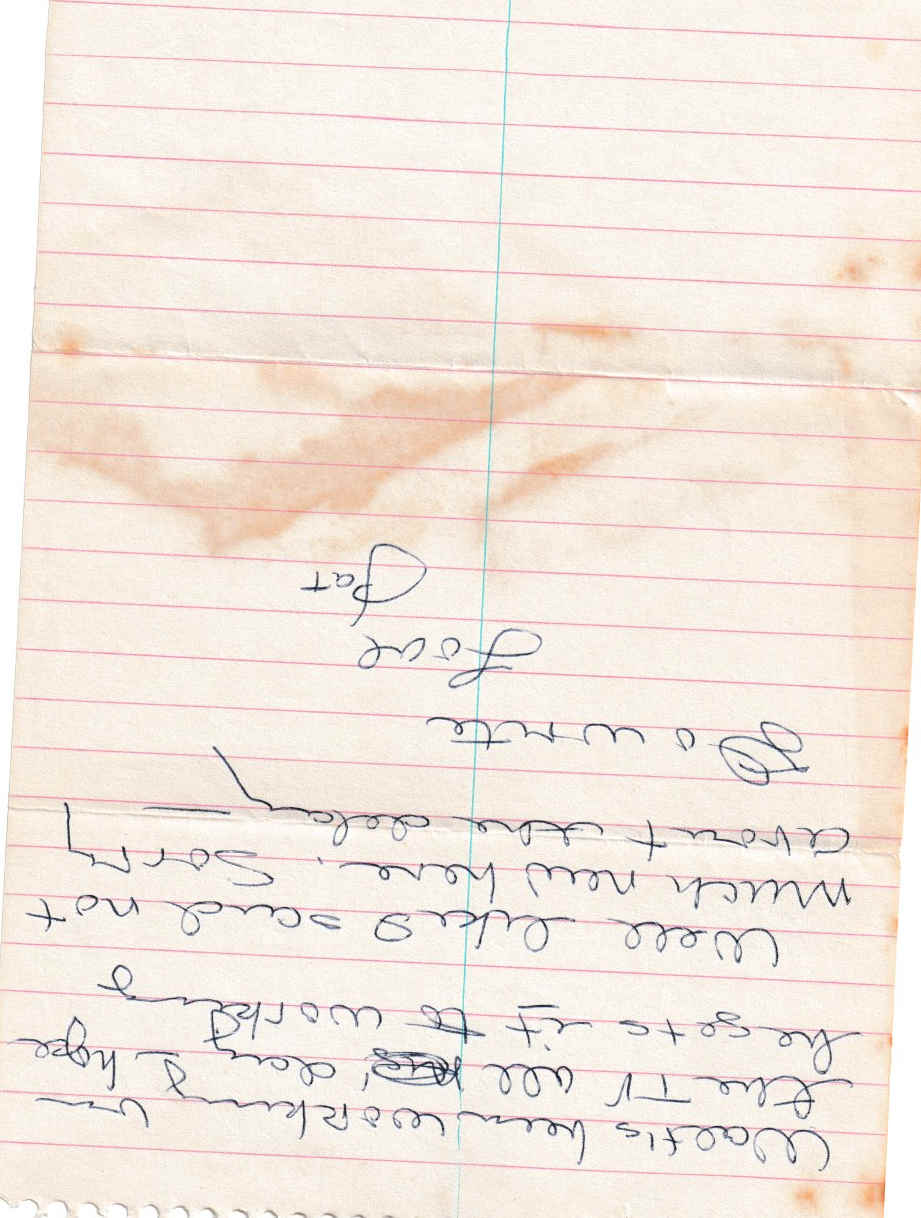 Walt's been working on
the TV all day, I hope
he gets it to working
Well like I said not
much new here. Sorry
about the delay —
Do write
Love
Pat